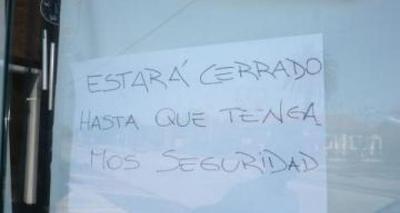 ESTARÁ CERRADO
HASTA QUE TENGA
MOS SEGURIDAD